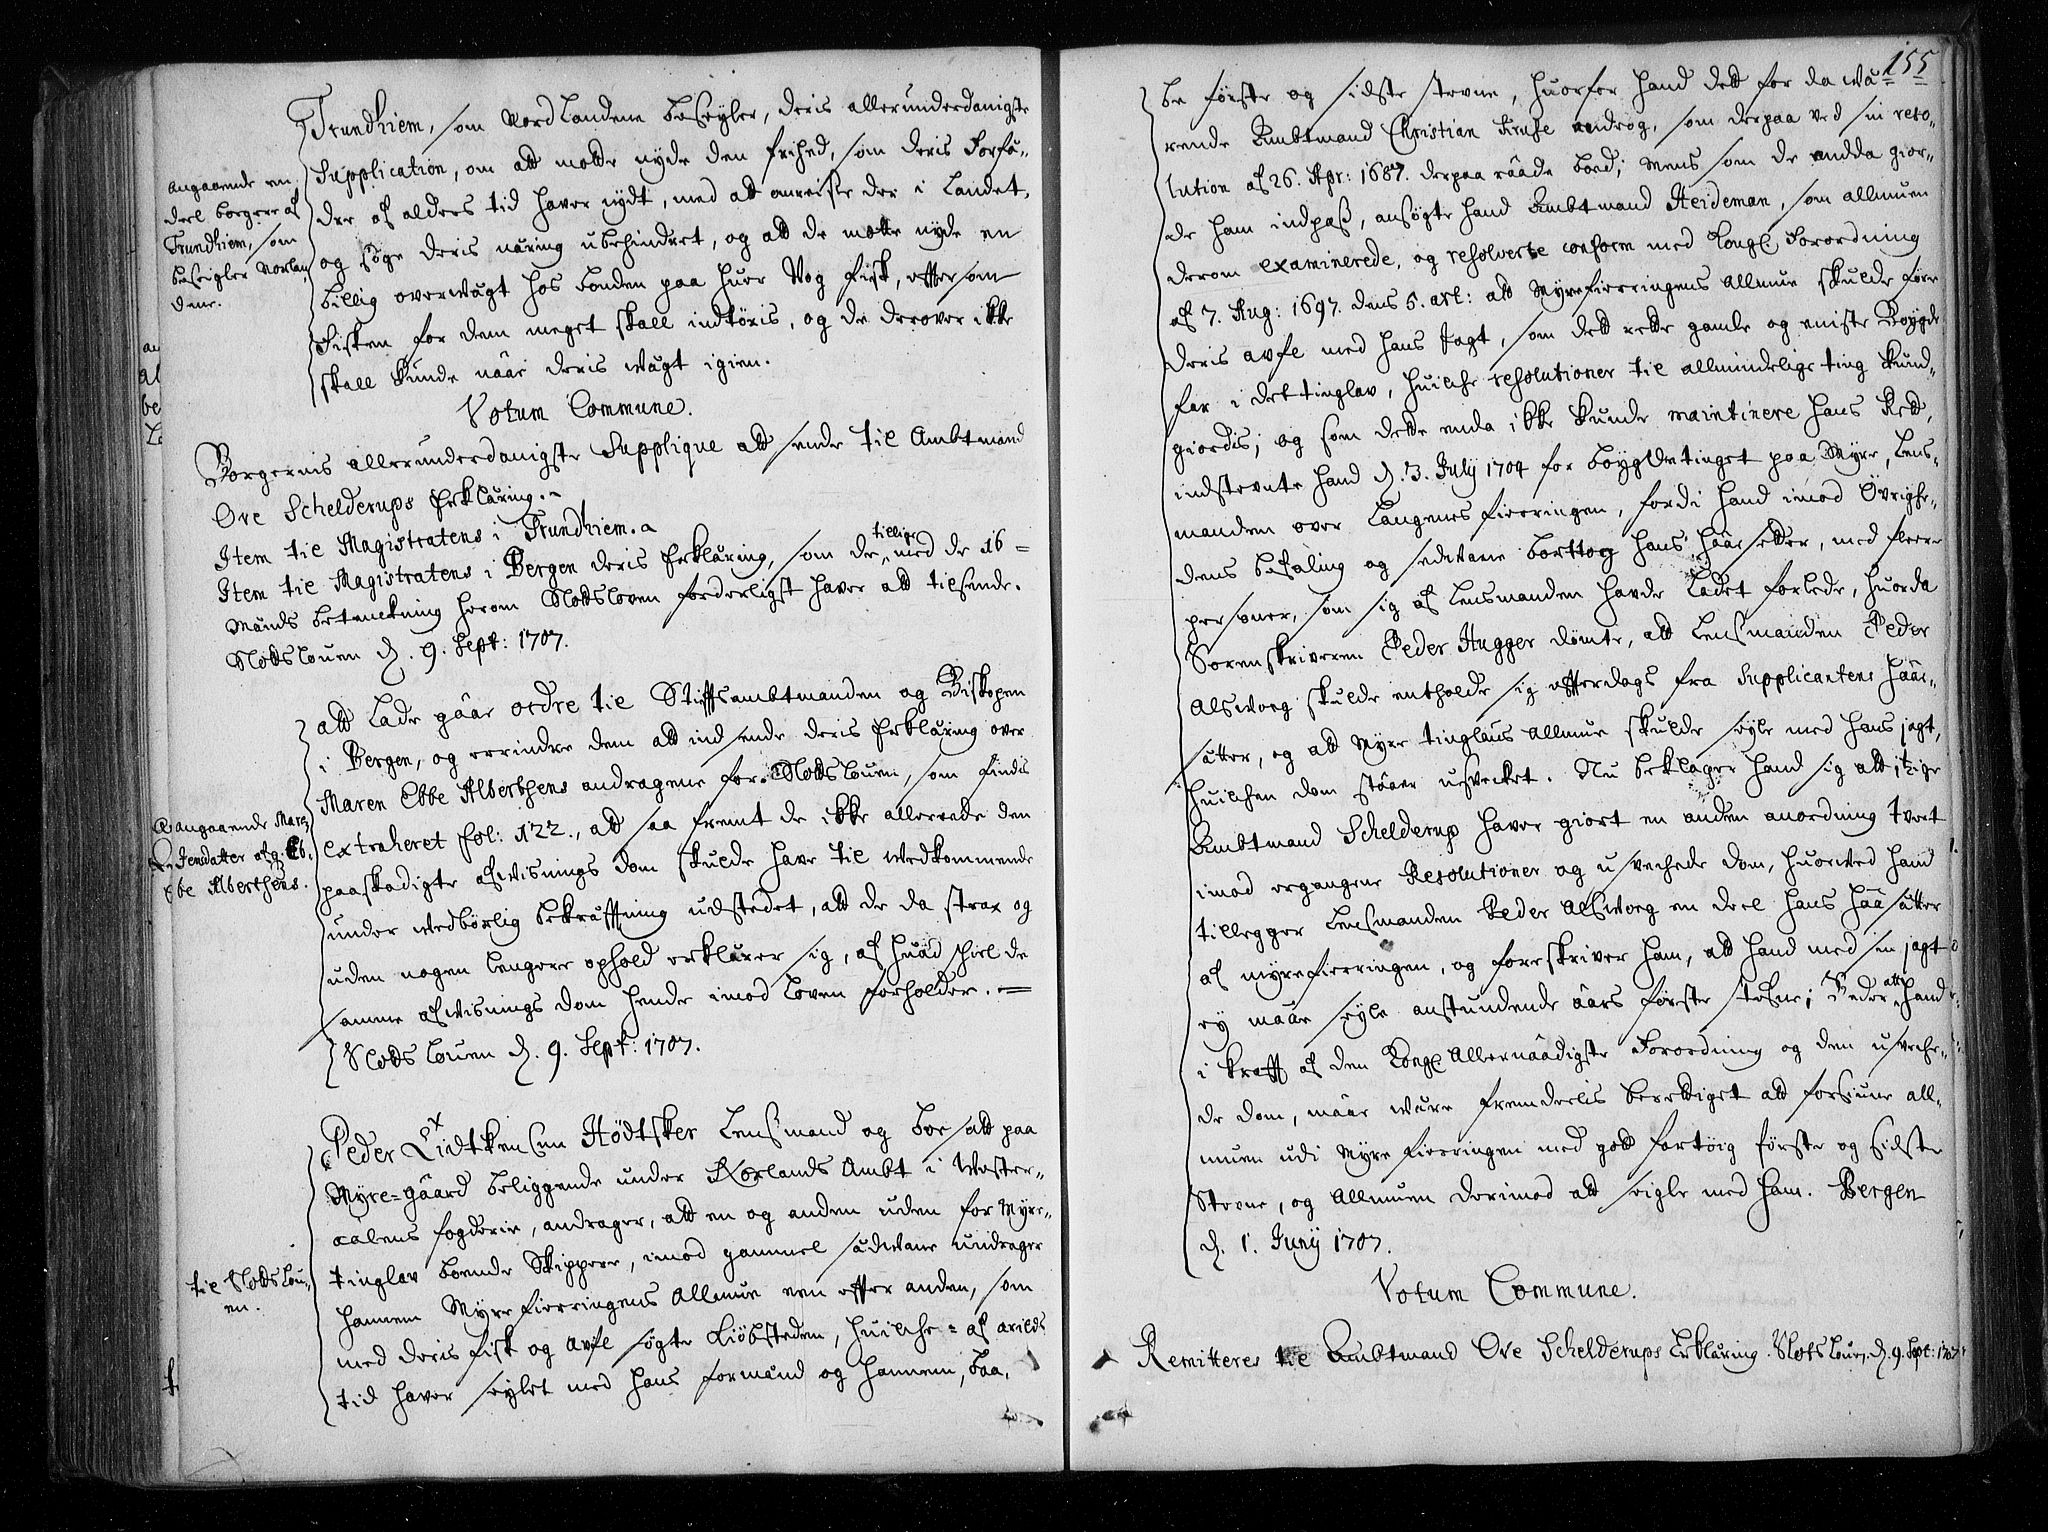 Trundhiem, som Nordlandene beseyler, deris allerunderdanigste
Supplication, om att motte nyde den frihed, som deris Forfæ-
dre af alders tid haver nydt, med att omreise der i Landet,
og søge deris næring ubehindret, og att de motte nyde en
billig overwægt hos bonden paa huer Vog fisk, efftersom
Fisken for dem meget skall indtøris, og de derover ikke
skall kunde nåæ deris wægt igien.
Angaaende en
deel borgere af
Trundhiem, som
beseigler Norlan
dene.
Votum Commune.
Borgernis allerunderdanigste Supplique att sende til Ambtmand
Ove Schelderups Erklæring.
Item til Magistratens i Trundhiem.
Item til Magistratens i Bergen deris Erklæring, som de tillige med de 16-
Mænds betenckning herom Slotsloven forderligst haver att tilsende.
Slotslouen d. 9. Sept: 1707.
att lade gåae ordre til Stifftsambtmanden og Biskopen
i Bergen, og errindre dem att indsende deris Erklæring over
Maren Ebbe Alberthens andragene for Slotslouen, som findis
extraheret fol: 122., att saa fremt de ikke allerrede den
paaskadigte afwisnings dom skulde have til wedkommende
under wedbørlig bekræfftning udstedet, att de da strax og
uden nogen lengere ophold erklærer sig, af huad skiel de
samme afwisnings dom hende imod loven forholder.
Slotslouen d. 9. Sept: 1707.
angaaende Maren
Jensdatter afg:
Ebbe Alberthens.
Peder Lidtkensøn Hødtsker Lensmand og boesatt paa
Myre-gåard beliggende under Norlands Ambt i Wester-
aalens fogderie, andrager, att en og anden uden for Myre-
tinglav boende Skippere, imod gammel sædwane undrager
hannem Myrefierringens Allmue een effter anden, som
med deris fisk og avfl søgte Kiöbsteden, huilche af arilds
tid haver seylet med hans formænd og hannem, baa-
til Slotslou-
en.
155
de første og sidste stevne, huorfor hand dett for da wæ-
rende Ambtmand Christian Kruse androg, som derpaa ved sin reso-
lution af 26. Apr: 1687. derpaa rååde boed; mens som de endda gior-
de ham indpass, ansøgte hand Ambtmand Heideman, som allmuen
derom examinerede, og resolverte conform med Kongl Forordning
af 7. Aug: 1697. dens 5. art: att Myrefierringens Allmue skulde føre
deris avfl med hans Jagt, som dett rette gamle og eniste Bøygde
far i det tinglav, huilche resolutioner til allmindelige ting kund-
giordis; og som dette enda ikke kunde maintinere hans Rett,
indstevnte hand d. 3. July 1704 for bøygdetinget paa Myre, Lens-
manden over Langenes fierringen, fordi hand imod Övrighe-
dens befaling og sedvane borttog hans Hååesetter, med fleere
personer, som sig af Lensmanden havde ladet forlede, huorda
Sorenskriveren Peder Hugger dømte, att Lensmanden Peder
Alsworg skulde entholde sig effterdags fra Supplicantens Hååe-
sætter, og att Myre tinglaus Allmue skulde seyle med hans jagt,
huilchen dom ståaer usvecket. Nu beklager hand sig att itzige
Ambtmand Schelderup haver giort en anden anordning tvert
imod ergangene Resolutioner og usvechede dom, huorved hand
tillegger Lensmanden Peder Alsworg en deel hans Hååsætter
af myrefierringen, og foreskriver ham, att hand med sin jagt
ey måae seyle anstundende åars første stefne; Beder att hand
i krafft af den Kongl Allernåadigste Forordning og den usveche-
de dom, måae være fremdeelis berettiget att forsiune all-
muen udi Myre fierringen med gott fartöig første og sidste
Stevne, og Allmuen derimod att seigle med ham. Bergen
d. 1. Juny 1707.
Votum Commune.
Remitteres til Ambtmand Ove Schelderups Erklæring. Slotslouen d. 9. Sept: 1707